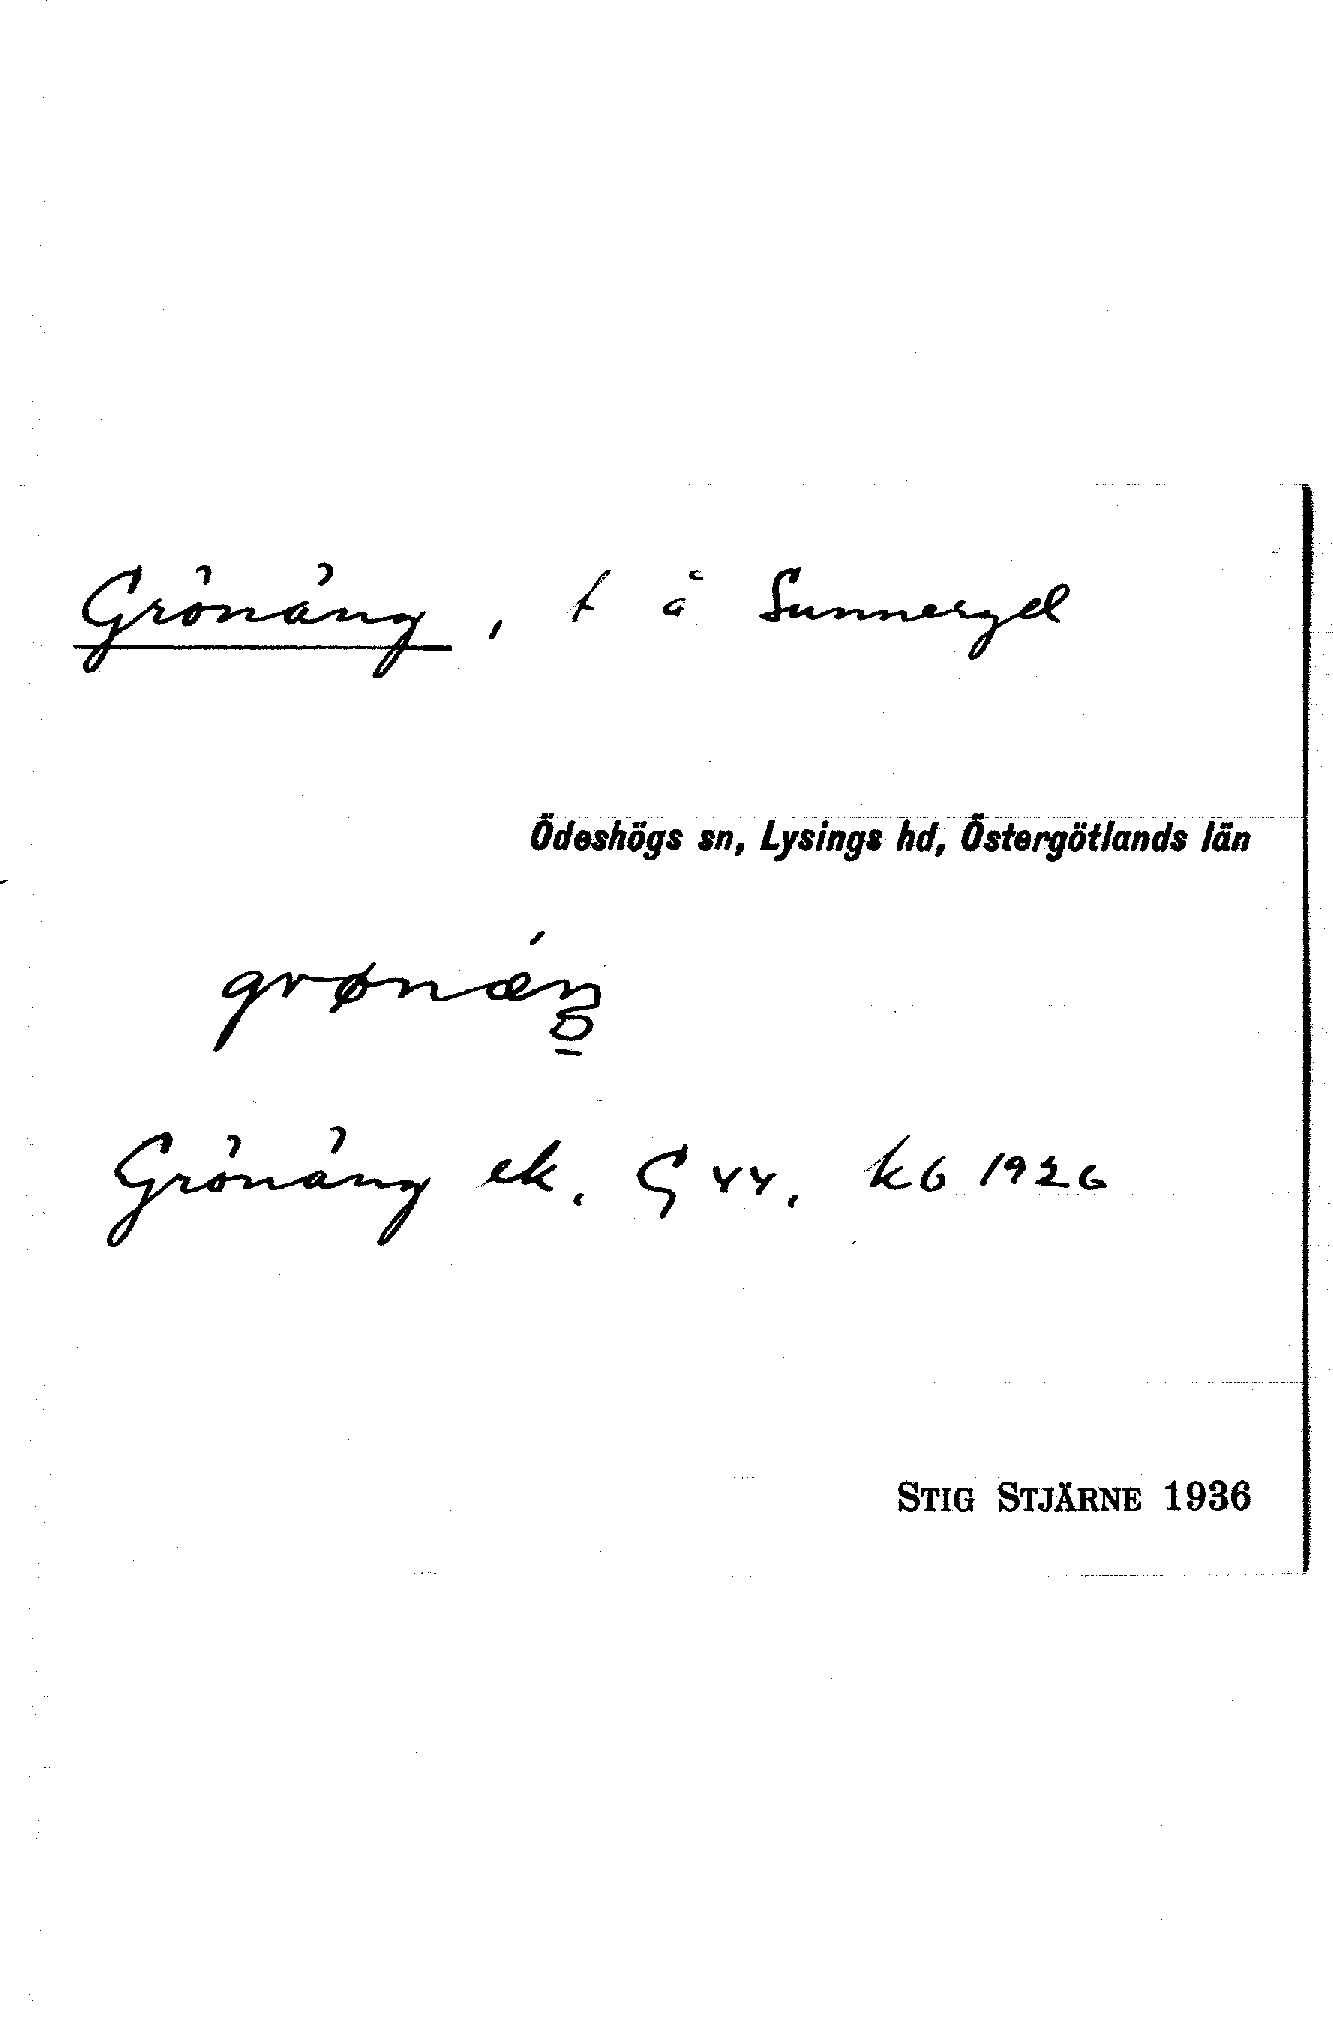 Grönäng, t å Sunneryd
Ödeshögs sn, Lysings hd, Östergötlands län
Grönäng ek. G 44, kb 1926
STIG STJÄRNE 1936